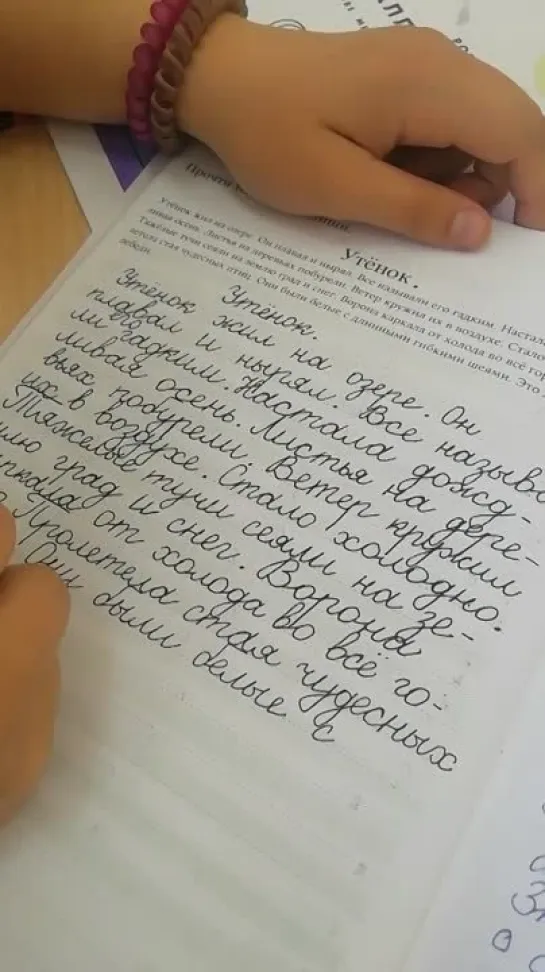 Прочти
Утёнок.
Утёнок жил на озере. Он плавал и нырял. Все называли его гадким. Настала
ливая осень. Листья на деревьях побурели. Ветер кружил их в воздухе. Стало
Тяжёлые тучи сеяли на землю град и снег. Ворона каркала от холода во всё гор
летела стая чудесных птиц. Они были белые с длинными гибкими шеями. Это
лебеди.
Утёнок.
Утёнок жил на озере. Он
плавал и нырял. Все называ
ли го гадким. Настала дожд-
ливая осень. Листья на дере-
вьях побурели. Ветер кружил
их в воздухе. Стало холодно.
Тяжелые тучи сеяли на зе-
млю град и снег. Ворона
ркала от холода во всё го-
Пролетела стая чудесных
Они были белые с